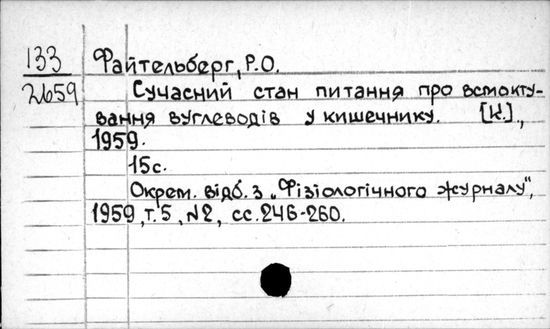 133
2659
Файтельберг, Р.О.
Сучасний стан питання про всмокту-
вання вуглеводів у кишечнику. [К].,
1959.
15с.
Окрем. відб. з „Фізіологічного журналу",
1959, т.5, №2, сс. 246-260.